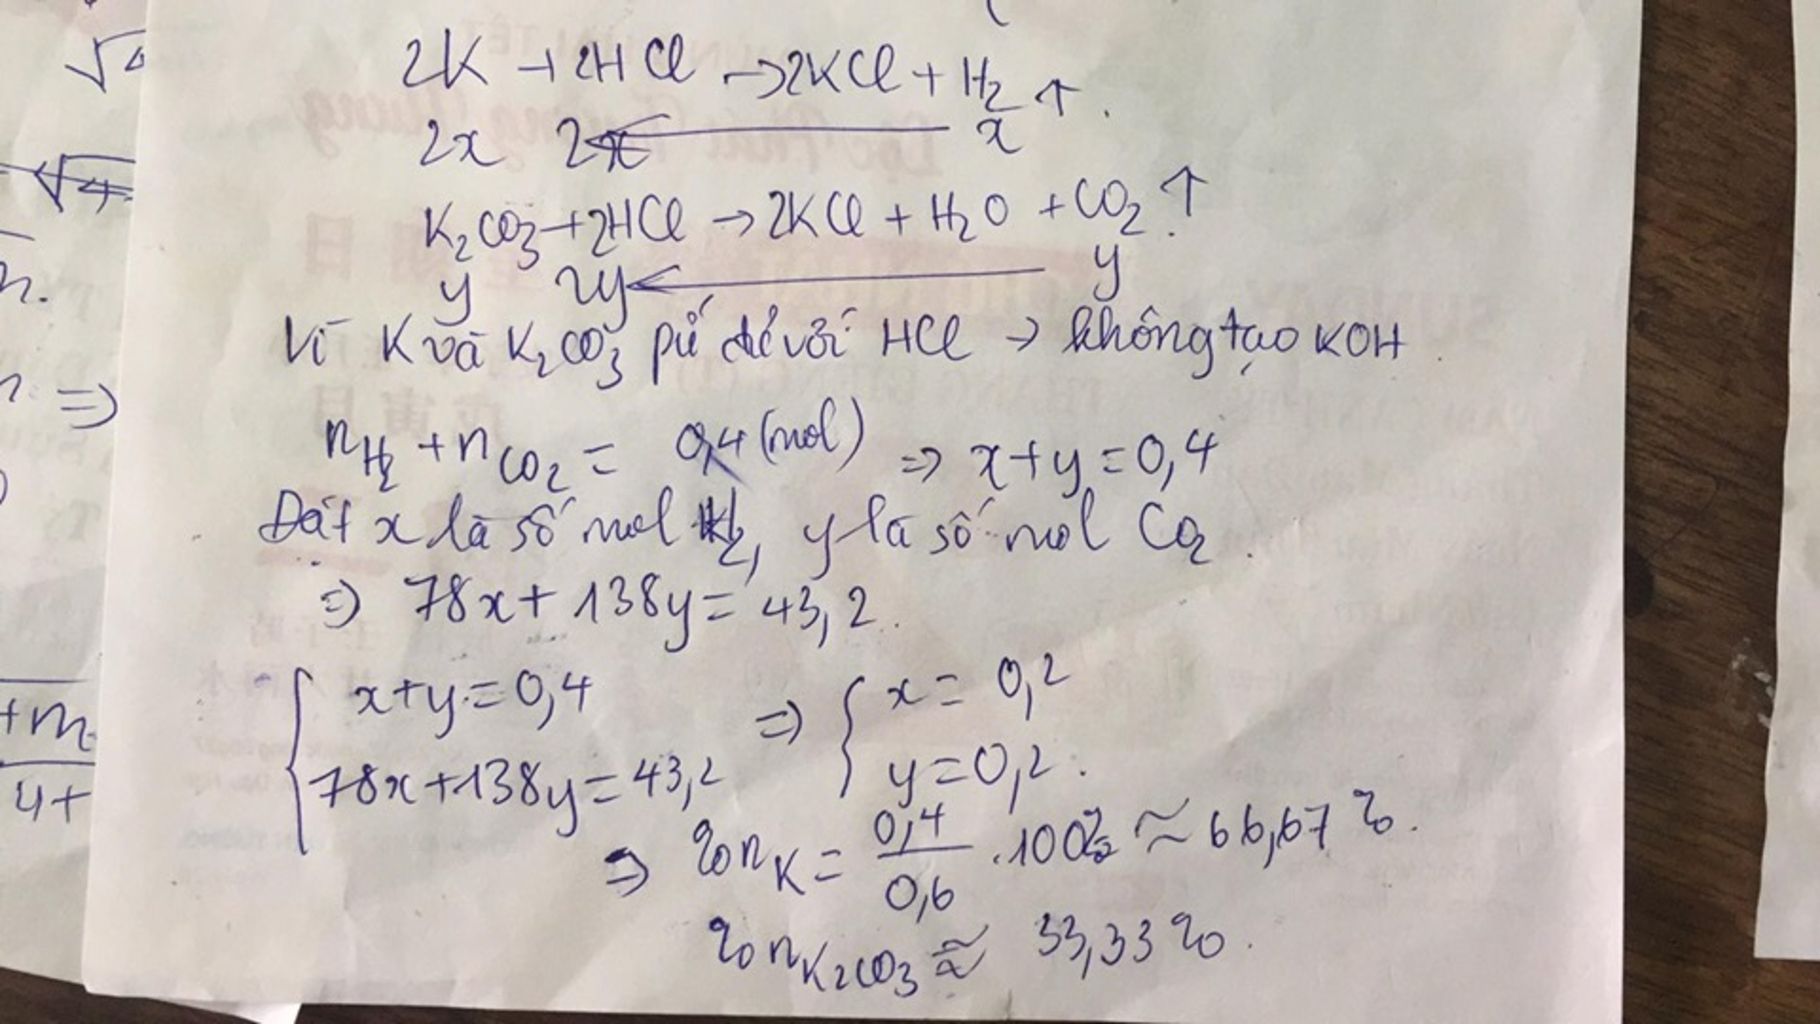 √4
2K + 2HCl → 2KCl + H2 ↑.
2x 2x x
√4
K2CO3 + 2HCl → 2KCl + H2O + CO2 ↑.
y 2y y
n.
Vì K và K2CO3 pứ đề với HCl → không tạo KOH.
⇒
nH2 + nCO2 = 0,4 (mol) ⇒ x + y = 0,4
Đặt x là số mol H2, y là số mol CO2.
⇒ 78x + 138y = 43,2.
{ x + y = 0,4 ⇒ { x = 0,2
78x + 138y = 43,2 y = 0,2.
+m
4+
⇒ %nK = 0,4/0,6 .100% ≈ 66,67%.
%nK2CO3 ≈ 33,33%.